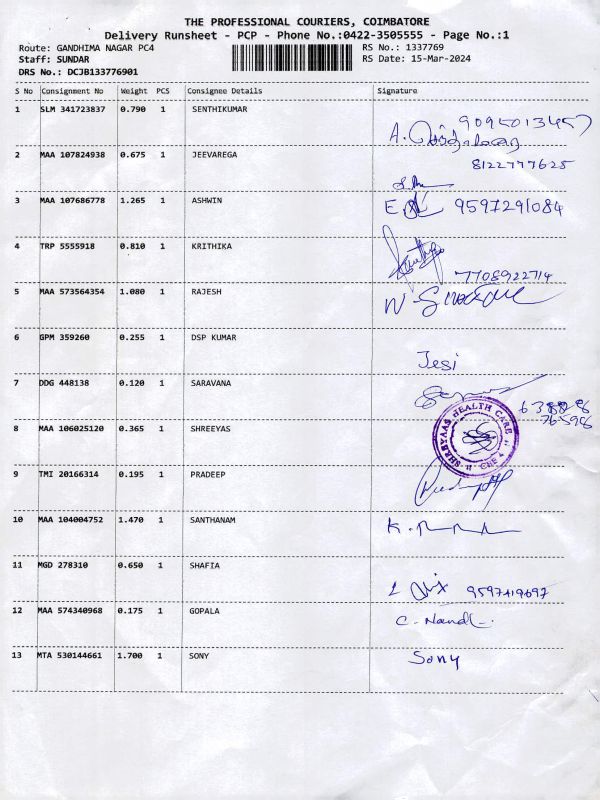 THE PROFESSIONAL COURIERS, COIMBATORE
Delivery Runsheet - PCP - Phone No.:0422-3505555 - Page No.:1
Route: GANDHIMA NAGAR PC4 RS No.: 1337769
Staff: SUNDAR RS Date: 15-Mar-2024
DRS No.: DCJB133776901
S No Consignment No Weight PCS Consignee Details Signature
1 SLM 341723837 0.790 1 SENTHIKUMAR
9095013457
A.
2 MAA 107824938 0.675 1 JEEVAREGA
8122777625
3 MAA 107686778 1.265 1 ASHWIN
9597291084
4 TRP 5555918 0.810 1 KRITHIKA
7708922714
5 MAA 573564354 1.080 1 RAJESH
6 GPM 359260 0.255 1 DSP KUMAR
Jesi
7 DDG 448138 0.120 1 SARAVANA
76598
8 MAA 106025120 0.365 1 SHREEYAS
SHREYAAS HEALTH CARE
CBE 4
9 TMI 20166314 0.195 1 PRADEEP
10 MAA 104004752 1.470 1 SANTHANAM
K.
11 MGD 278310 0.650 1 SHAFIA
9597419697
12 MAA 574340968 0.175 1 GOPALA
C. Nandl-
13 MTA 530144661 1.700 1 SONY
Sony